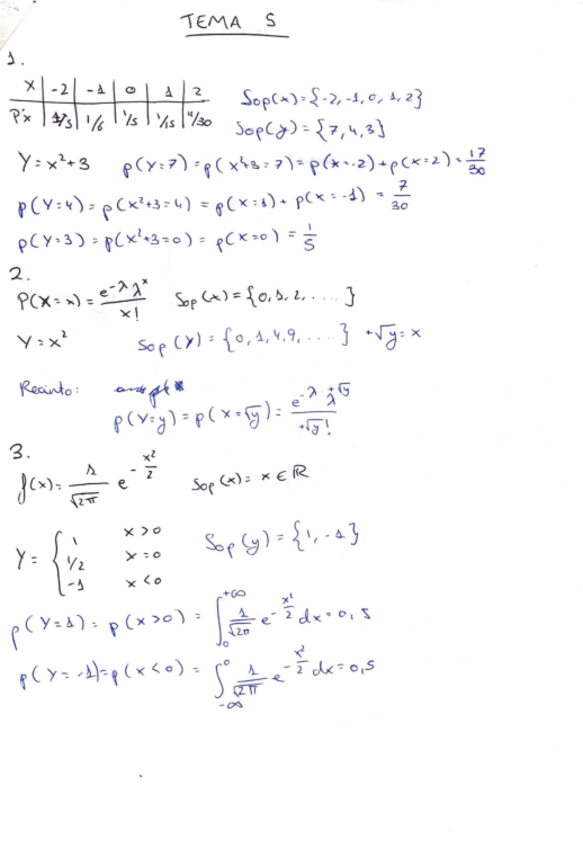 TEMA 5
1.
x | -2 | -1 | 0 | 1 | 2
P'x | 1/5 | 1/6 | 1/5 | 1/15 | 11/30
Sop(x)={-2,-1,0,1,2}
Sop(y)={7,4,3}
Y=x²+3 p(Y=7)=p(x²+3=7)=p(x=-2)+p(x=2)=17/30
p(Y=4)=p(x²+3=4)=p(x=1)+p(x=-1)=7/30
p(Y=3)=p(x²+3=0)=p(x=0)=1/5
2.
P(X=x)=e^-λ λ^x / x! Sop(x)={0,1,2,....}
Y=x² Sop(Y)={0,1,4,9,....} +√y=x
Recinto:
p(Y=y)=p(X=√y)=e^-λ λ^+√y / +√y!
3.
f(x)=1/√2π e^-x²/2 Sop(x)=x∈ℝ
Y={ 1 x>0
1/2 x=0
-1 x<0
Sop(y)={1,-1}
p(Y=1)=p(x>0)=∫₀^+∞ 1/√2π e^-x²/2 dx=0,5
p(Y=-1)=p(x<0)=∫_-∞^0 1/√2π e^-x²/2 dx=0,5